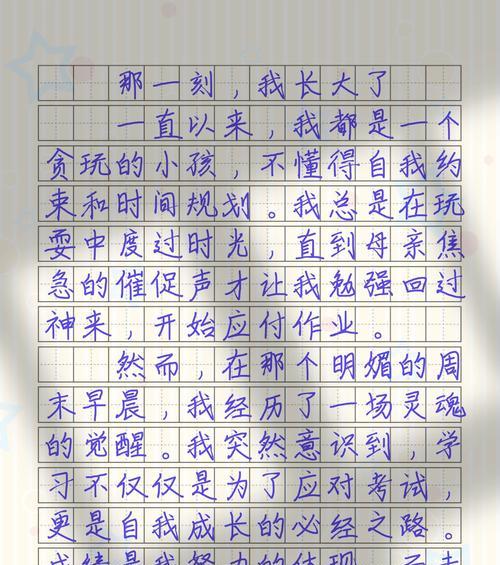 那一刻，我长大了
一直以来，我都是一个
贪玩的小孩，不懂得自我约
束和时间规划。我总是在玩
耍中度过时光，直到母亲焦
急的催促声才让我勉强回过
神来，开始应付作业。
然而，在那个明媚的周
末早晨，我经历了一场灵魂
的觉醒。我突然意识到，学
习不仅仅是为了应对考试，
更是自我成长的必经之路。
成绩是我努力的体现，而